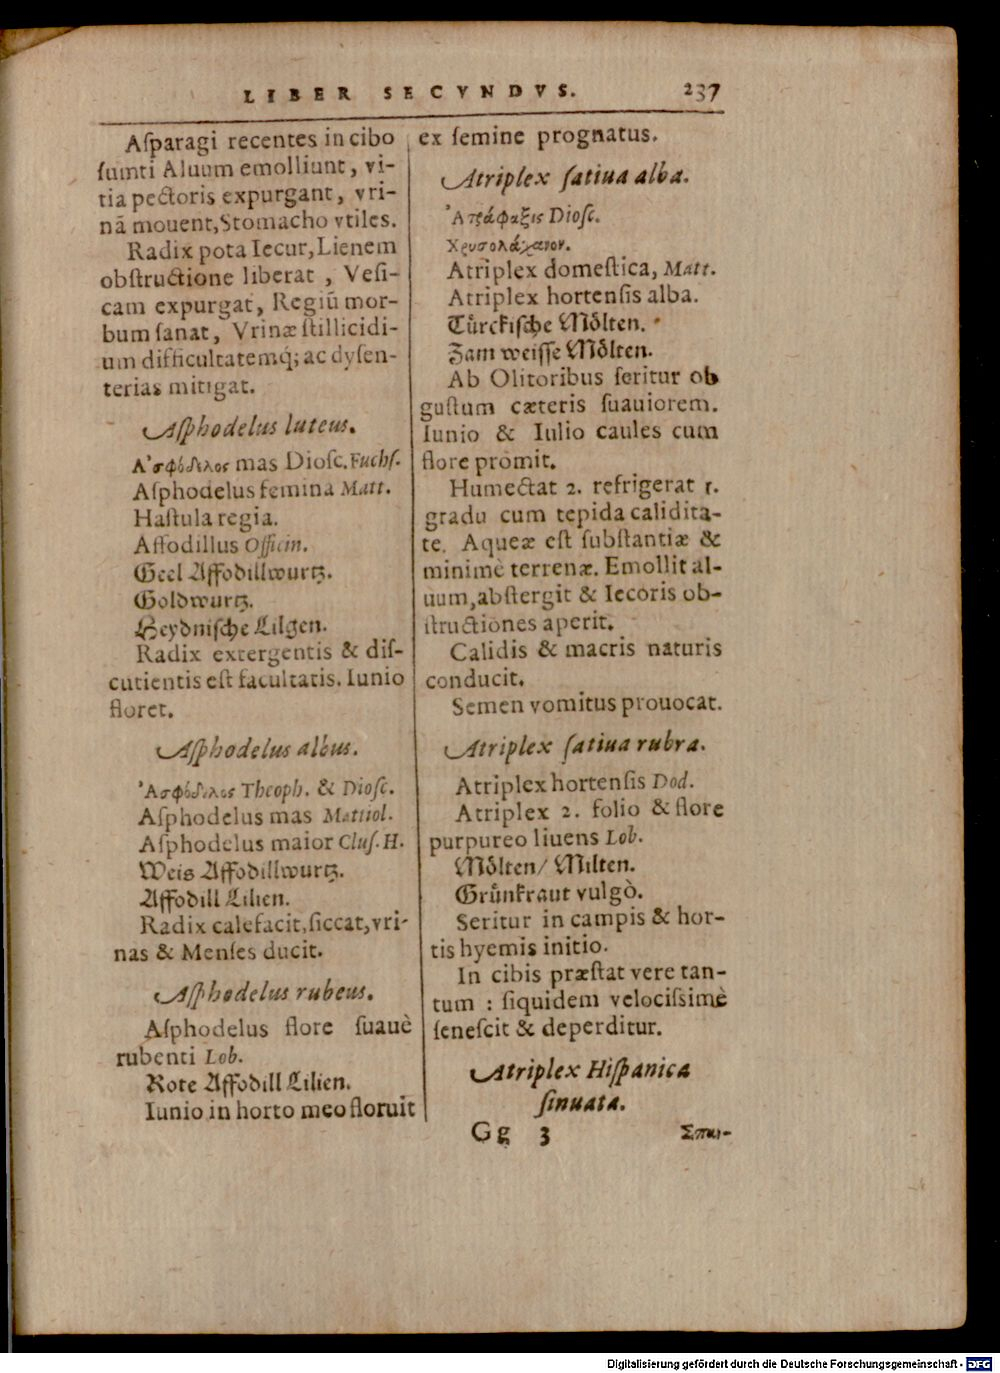 LIBER SECVNDVS. 237
Aſparagi recentes in cibo
ſumti Aluum emolliunt, vi-
tia pectoris expurgant, vri-
nã mouent, Stomacho vtiles.
Radix pota Iecur, Lienem
obſtructione liberat, Veſi-
cam expurgat, Regiũ mor-
bum ſanat, Vrinæ ſtillicidi-
um difficultatemq́; ac dyſen-
terias mitigat.
Aſphodelus luteus.
Ἀσφόδελος mas Dioſc. Fuchſ.
Aſphodelus femina Matt.
Haſtula regia.
Affodillus Officin.
Geel Affodillwurtz.
Goldwurtz.
Heydniſche Lilgen.
Radix extergentis & diſ-
cutientis eſt facultatis. Iunio
floret.
Aſphodelus albus.
Ἀσφόδελος Theoph. & Dioſc.
Aſphodelus mas Mattiol.
Aſphodelus maior Cluſ. H.
Weis Affodillwurtz.
Affodill Lilien.
Radix calefacit, ſiccat, vri-
nas & Menſes ducit.
Aſphodelus rubeus.
Aſphodelus flore ſuauè
rubenti Lob.
Rote Affodill Lilien.
Iunio in horto meo floruit
ex ſemine prognatus.
Atriplex ſatiua alba.
Ἀτράφαξις Dioſc.
Χρυσολάχανον.
Atriplex domeſtica, Matt.
Atriplex hortenſis alba.
Tuͤrckiſche Moͤlten.
Zam weiſſe Moͤlten.
Ab Olitoribus ſeritur ob
guſtum cæteris ſuauiorem.
Iunio & Iulio caules cum
flore promit.
Humectat 2. refrigerat 1.
gradu cum tepida calidita-
te. Aqueæ eſt ſubſtantiæ &
minimè terrenæ. Emollit al-
uum, abſtergit & Iecoris ob-
ſtructiones aperit.
Calidis & macris naturis
conducit.
Semen vomitus prouocat.
Atriplex ſatiua rubra.
Atriplex hortenſis Dod.
Atriplex 2. folio & flore
purpureo liuens Lob.
Moͤlten/ Milten.
Gruͤnkraut vulgò.
Seritur in campis & hor-
tis hyemis initio.
In cibis præſtat vere tan-
tum : ſiquidem velociſſimè
ſeneſcit & deperditur.
Atriplex Hiſpanica
ſinuata.
Gg 3 Σπαι-
Digitalisierung gefördert durch die Deutsche Forschungsgemeinschaft - DFG